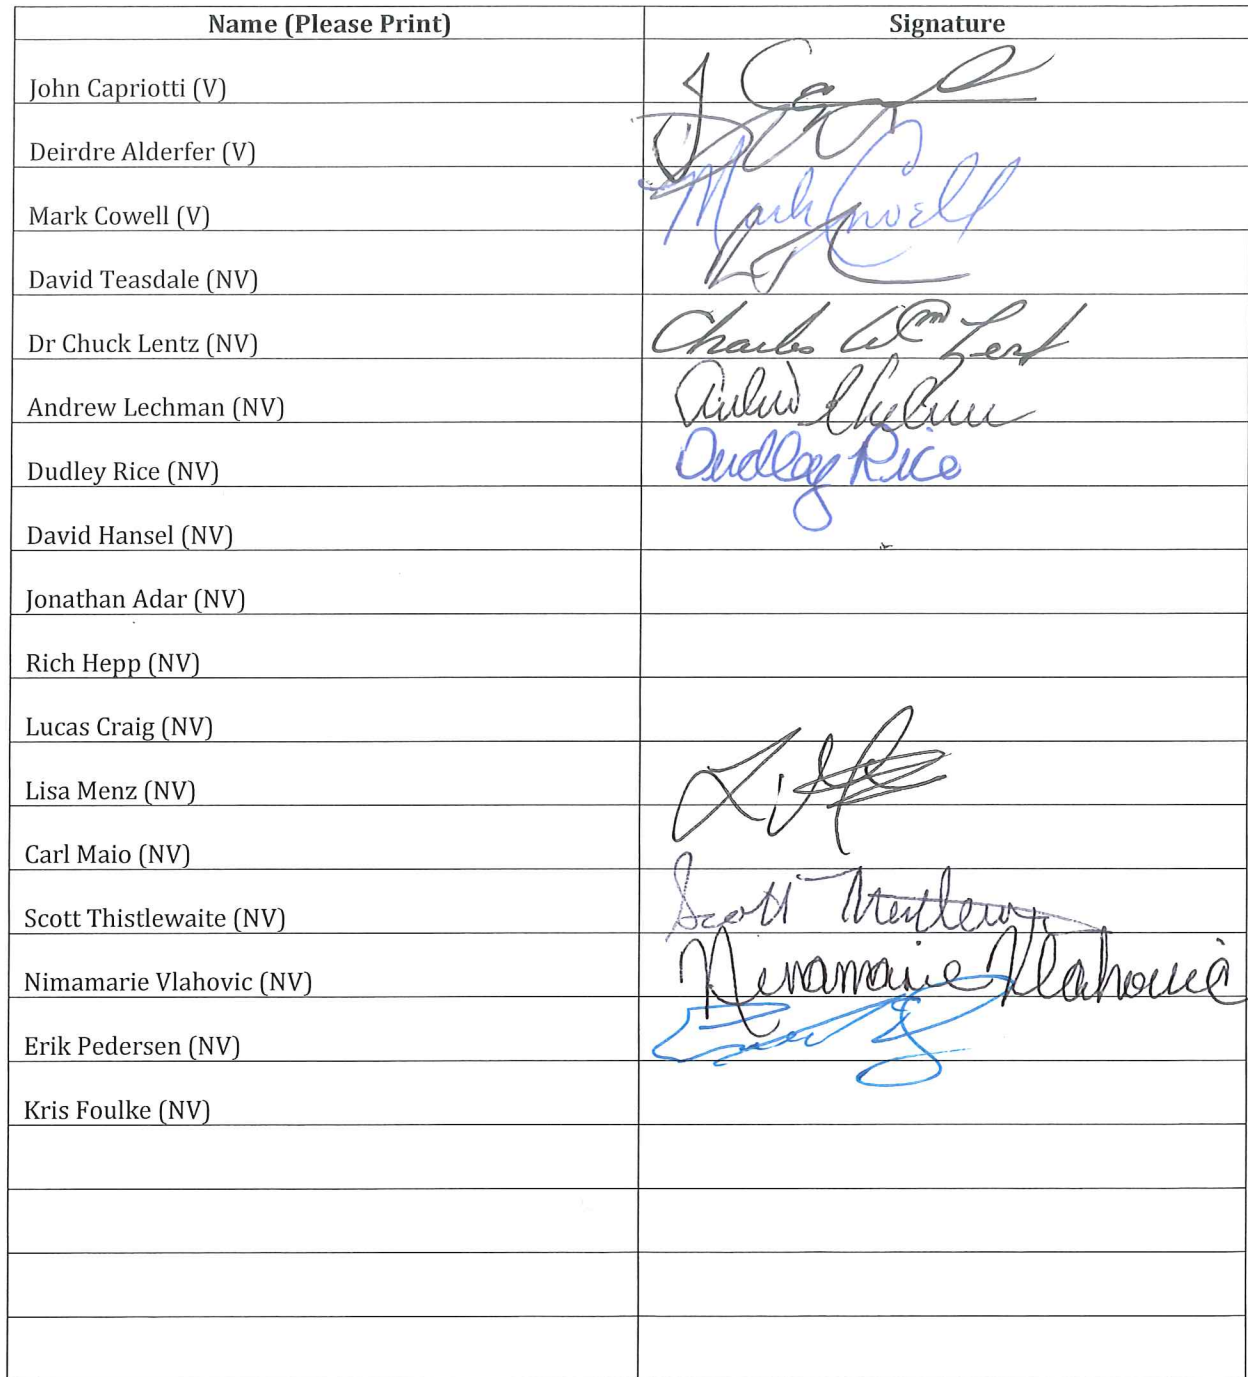 Name (Please Print) Signature
John Capriotti (V)
Deirdre Alderfer (V)
Mark Cowell (V) Mark Cowell
David Teasdale (NV)
Dr Chuck Lentz (NV) Charles Wm Lentz
Andrew Lechman (NV)
Dudley Rice (NV) Dudley Rice
David Hansel (NV)
Jonathan Adar (NV)
Rich Hepp (NV)
Lucas Craig (NV)
Lisa Menz (NV)
Carl Maio (NV)
Scott Thistlewaite (NV) Scott
Nimamarie Vlahovic (NV) Ninamarie Vlahovic
Erik Pedersen (NV)
Kris Foulke (NV)